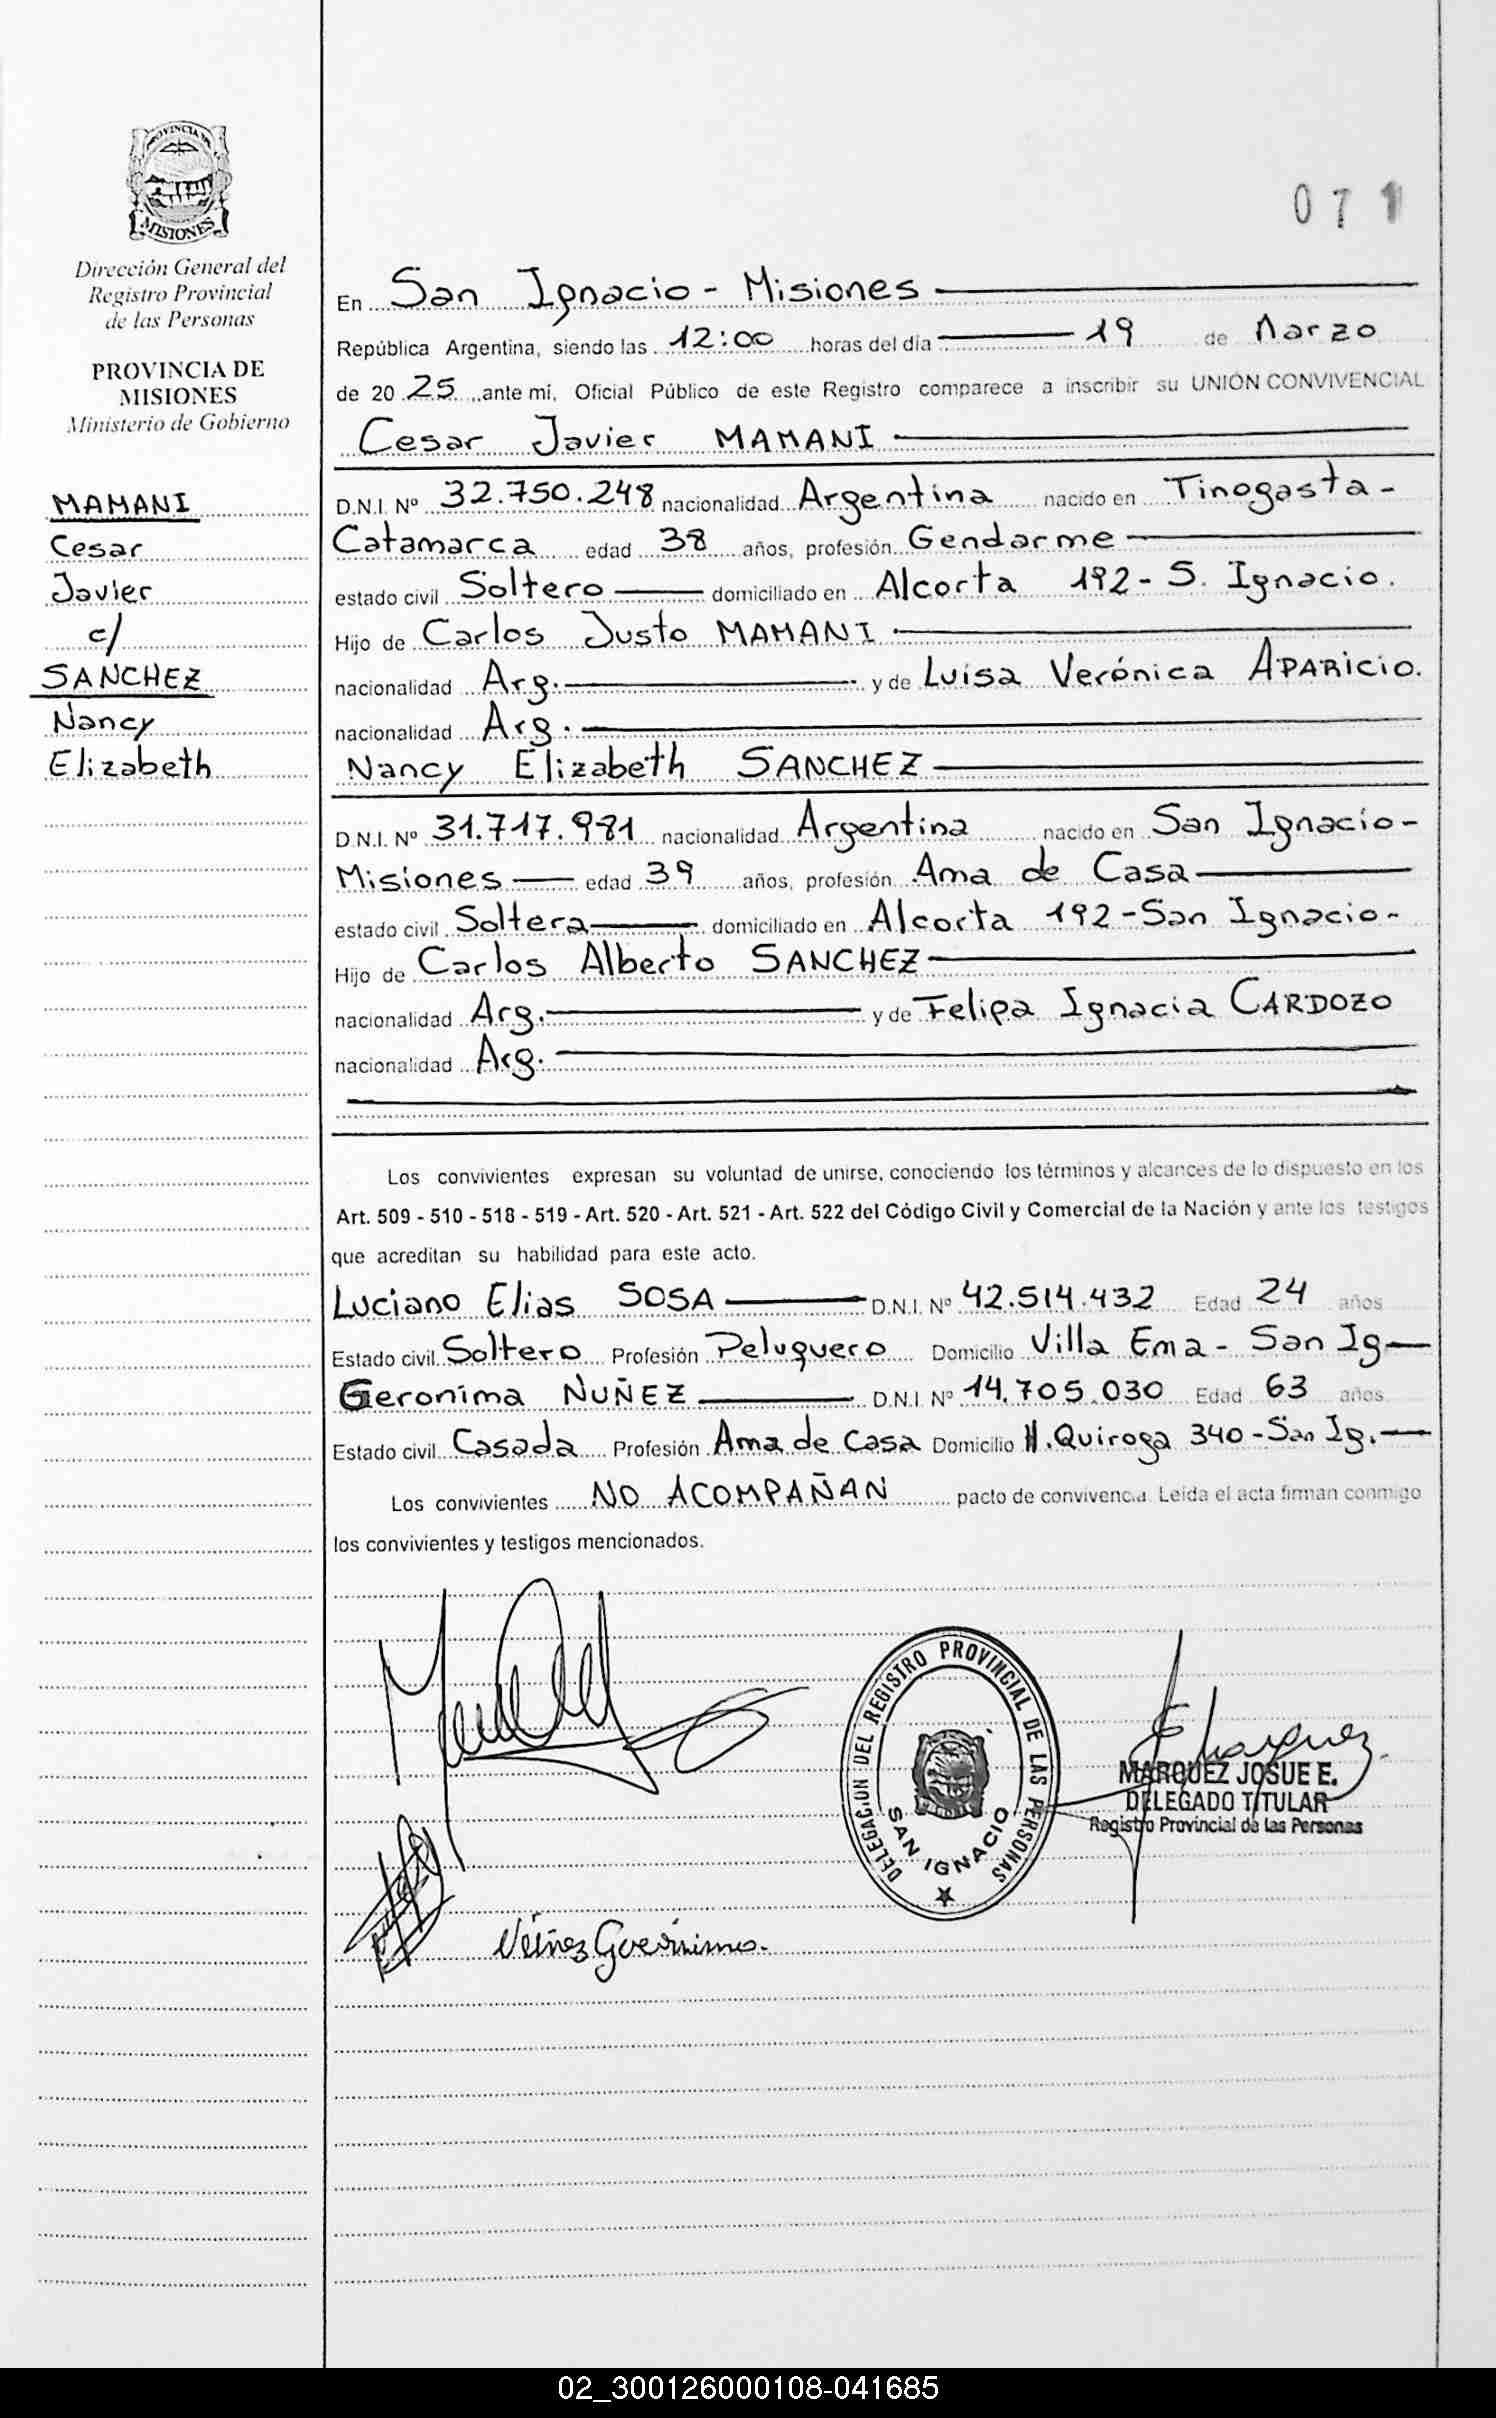 PROVINCIA DE
MISIONES
Dirección General del
Registro Provincial
de las Personas
PROVINCIA DE
MISIONES
Ministerio de Gobierno
MAMANI
Cesar
Javier
c/
SANCHEZ
Nancy
Elizabeth
071
En San Ignacio - Misiones
República Argentina, siendo las 12:00 horas del día 19 de Marzo
de 20 25 ante mi, Oficial Público de este Registro comparece a inscribir su UNIÓN CONVIVENCIAL
Cesar Javier MAMANI
D.N.I. Nº 32.750.248 nacionalidad Argentina nacido en Tinogasta -
Catamarca edad 38 años, profesión Gendarme
estado civil Soltero domiciliado en Alcorta 192 - S. Ignacio.
Hijo de Carlos Justo MAMANI
nacionalidad Arg. y de Luisa Verónica APARICIO.
nacionalidad Arg.
Nancy Elizabeth SANCHEZ
D.N.I. Nº 31.717.981 nacionalidad Argentina nacido en San Ignacio -
Misiones edad 39 años, profesión Ama de Casa
estado civil Soltera domiciliado en Alcorta 192 - San Ignacio -
Hijo de Carlos Alberto SANCHEZ
nacionalidad Arg. y de Felipa Ignacia CARDOZO
nacionalidad Arg.
Los convivientes expresan su voluntad de unirse, conociendo los términos y alcances de lo dispuesto en los
Art. 509 - 510 - 518 - 519 - Art. 520 - Art. 521 - Art. 522 del Código Civil y Comercial de la Nación y ante los testigos
que acreditan su habilidad para este acto.
Luciano Elias SOSA D.N.I. Nº 42.514.432 Edad 24 años
Estado civil Soltero Profesión Peluquero Domicilio Villa Ema - San Ig
Geronima NUÑEZ D.N.I. Nº 14.705.030 Edad 63 años
Estado civil Casada Profesión Ama de Casa Domicilio H. Quiroga 340 - San Ig.
Los convivientes NO ACOMPAÑAN pacto de convivencia. Leída el acta firman conmigo
los convivientes y testigos mencionados.
DELEGACION DEL REGISTRO PROVINCIAL DE LAS PERSONAS
SAN IGNACIO
MARQUEZ JOSUE E.
DELEGADO TITULAR
Registro Provincial de las Personas
02_300126000108-041685